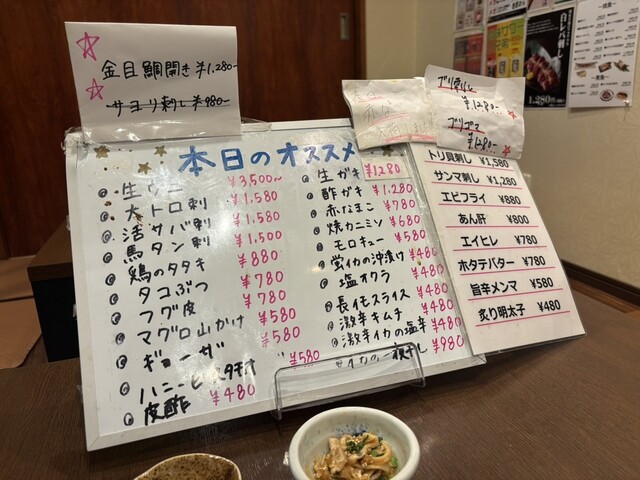 金目鯛開き ¥1,280-
サヨリ刺し ¥980-
本日のオススメ
生ウニ ¥3,500〜
大トロ刺 ¥1,580
活サバ刺 ¥1,580
馬タン刺 ¥1,500
鶏のタタキ ¥880
タコぶつ ¥780
フグ皮 ¥780
マグロ山かけ ¥580
ギョーザ ¥580
¥580
皮酢 ¥480
生ガキ ¥1280
酢ガキ ¥1,280
赤なまこ ¥780
焼カニミソ ¥680
モロキュー ¥580
蛍イカの沖漬け ¥480
塩オクラ ¥480
長イモスライス ¥480
激辛キムチ ¥480
激辛イカの塩辛 ¥480
¥980
ブリ刺し
¥1,280-
ブリゴマ
¥1280-
トリ貝刺し ¥1,580
サンマ刺し ¥1,280
エビフライ ¥880
あん肝 ¥800
エイヒレ ¥780
ホタテバター ¥780
旨辛メンマ ¥580
炙り明太子 ¥480
白レバ刺し
1,280円